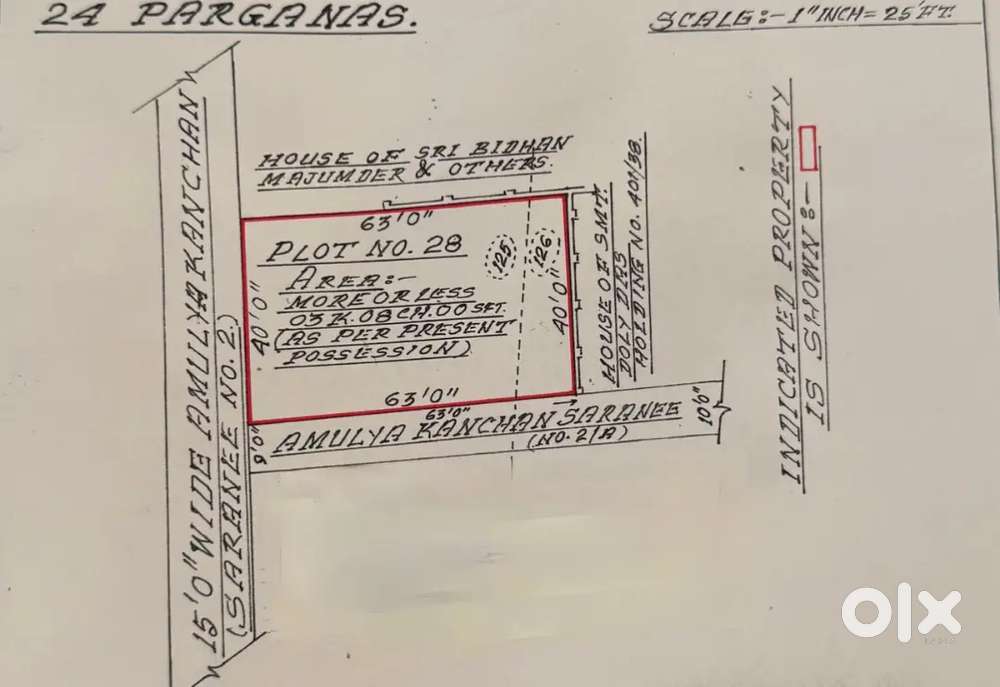 24 PARGANAS.
SCALE:- 1" INCH = 25' FT.
HOUSE OF SRI BIDHAN
MAJUMDER & OTHERS.
63'0"
PLOT NO. 28
125
126
AREA:-
MORE OR LESS
03 K. 08 CH. 00 SFT.
(AS PER PRESENT
POSSESSION)
40'0"
40'0"
63'0"
63'0"
9'0"
AMULYA KANCHAN SARANEE
(NO. 2/A)
10'6"
15'0" WIDE AMULYA KANCHAN
(SARANEE NO. 2.)
HOUSE OF SMT.
DOLY DAS
HOLDING NO. 401/38.
INDICATED PROPERTY
IS SHOWN:-
olx